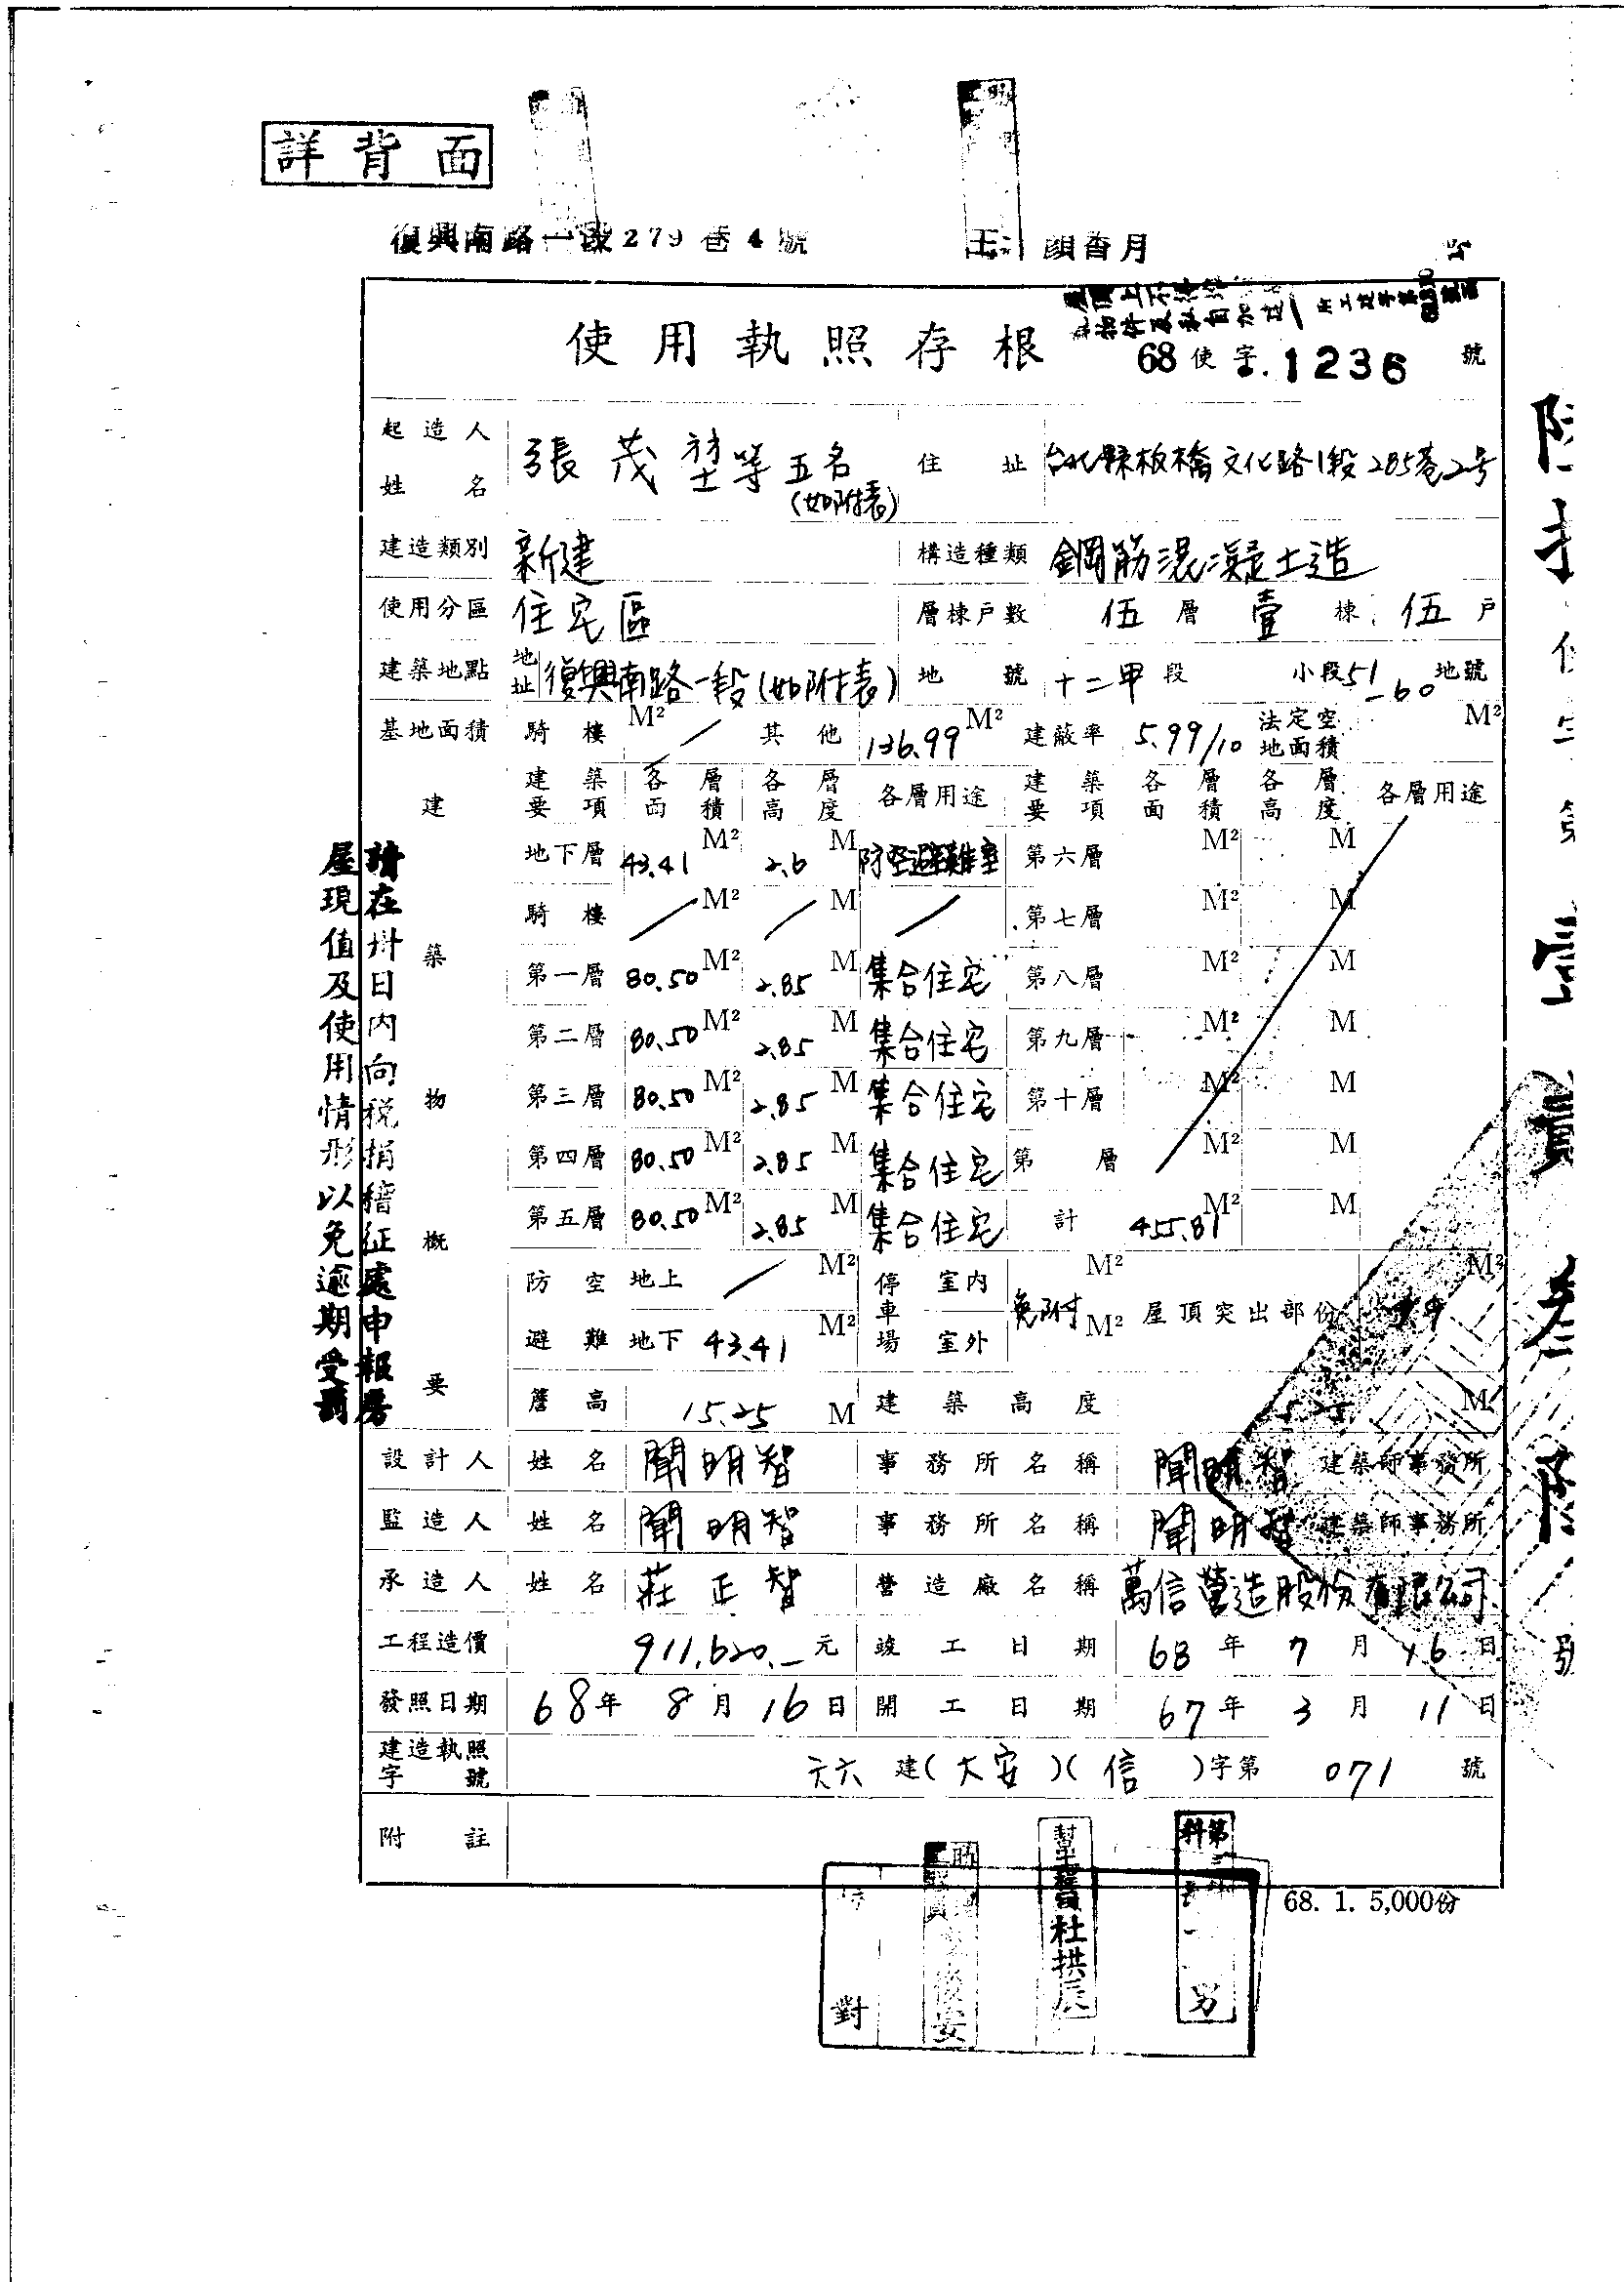 詳背面
復興南路一段279巷4號
顏香月
使用執照存根
68使字.1236號
起造人姓名 張茂埜等五名(如附表) 住址 台北縣板橋文化路1段285巷2号
建造類別 新建 構造種類 鋼筋混凝土造
使用分區 住宅區 層棟戶數 伍層壹棟伍戶
建築地點 地址 復興南路一段(如附表) 地號 十二甲段 小段51-60地號
基地面積 騎樓 M² / 其他 136.99 M² 建蔽率 5.99/10 法定空地面積 M²
建築物概要
建築要項 各層面積 各層高度 各層用途 建築要項 各層面積 各層高度 各層用途
地下層 43.41 M² 2.6 M 防空避難室 第六層 M² M
騎樓 / M² / M / 第七層 M² M
第一層 80.50 M² 2.85 M 集合住宅 第八層 M² M
第二層 80.50 M² 2.85 M 集合住宅 第九層 M² M
第三層 80.50 M² 2.85 M 集合住宅 第十層 M² M
第四層 80.50 M² 2.85 M 集合住宅 第 層 M² M
第五層 80.50 M² 2.85 M 集合住宅 計 455.81 M² M
防空避難 地上 / M² 停車場 室內 M² 免附 屋頂突出部份 M²
地下 43.41 M² 室外 M²
簷高 15.25 M 建築高度 M
設計人 姓名 聞明智 事務所名稱 聞明智 建築師事務所
監造人 姓名 聞明智 事務所名稱 聞明智 建築師事務所
承造人 姓名 莊正智 營造廠名稱 萬信營造股份有限公司
工程造價 911,620.- 元 竣工日期 68年7月16日
發照日期 68年8月16日 開工日期 67年3月11日
建造執照字號 六六建(大安)(信)字第071號
附註
請在卅日內向稅捐稽征處申報房
屋現值及使用情形以免逾期受罰
68. 1. 5,000份
對
杜拱辰